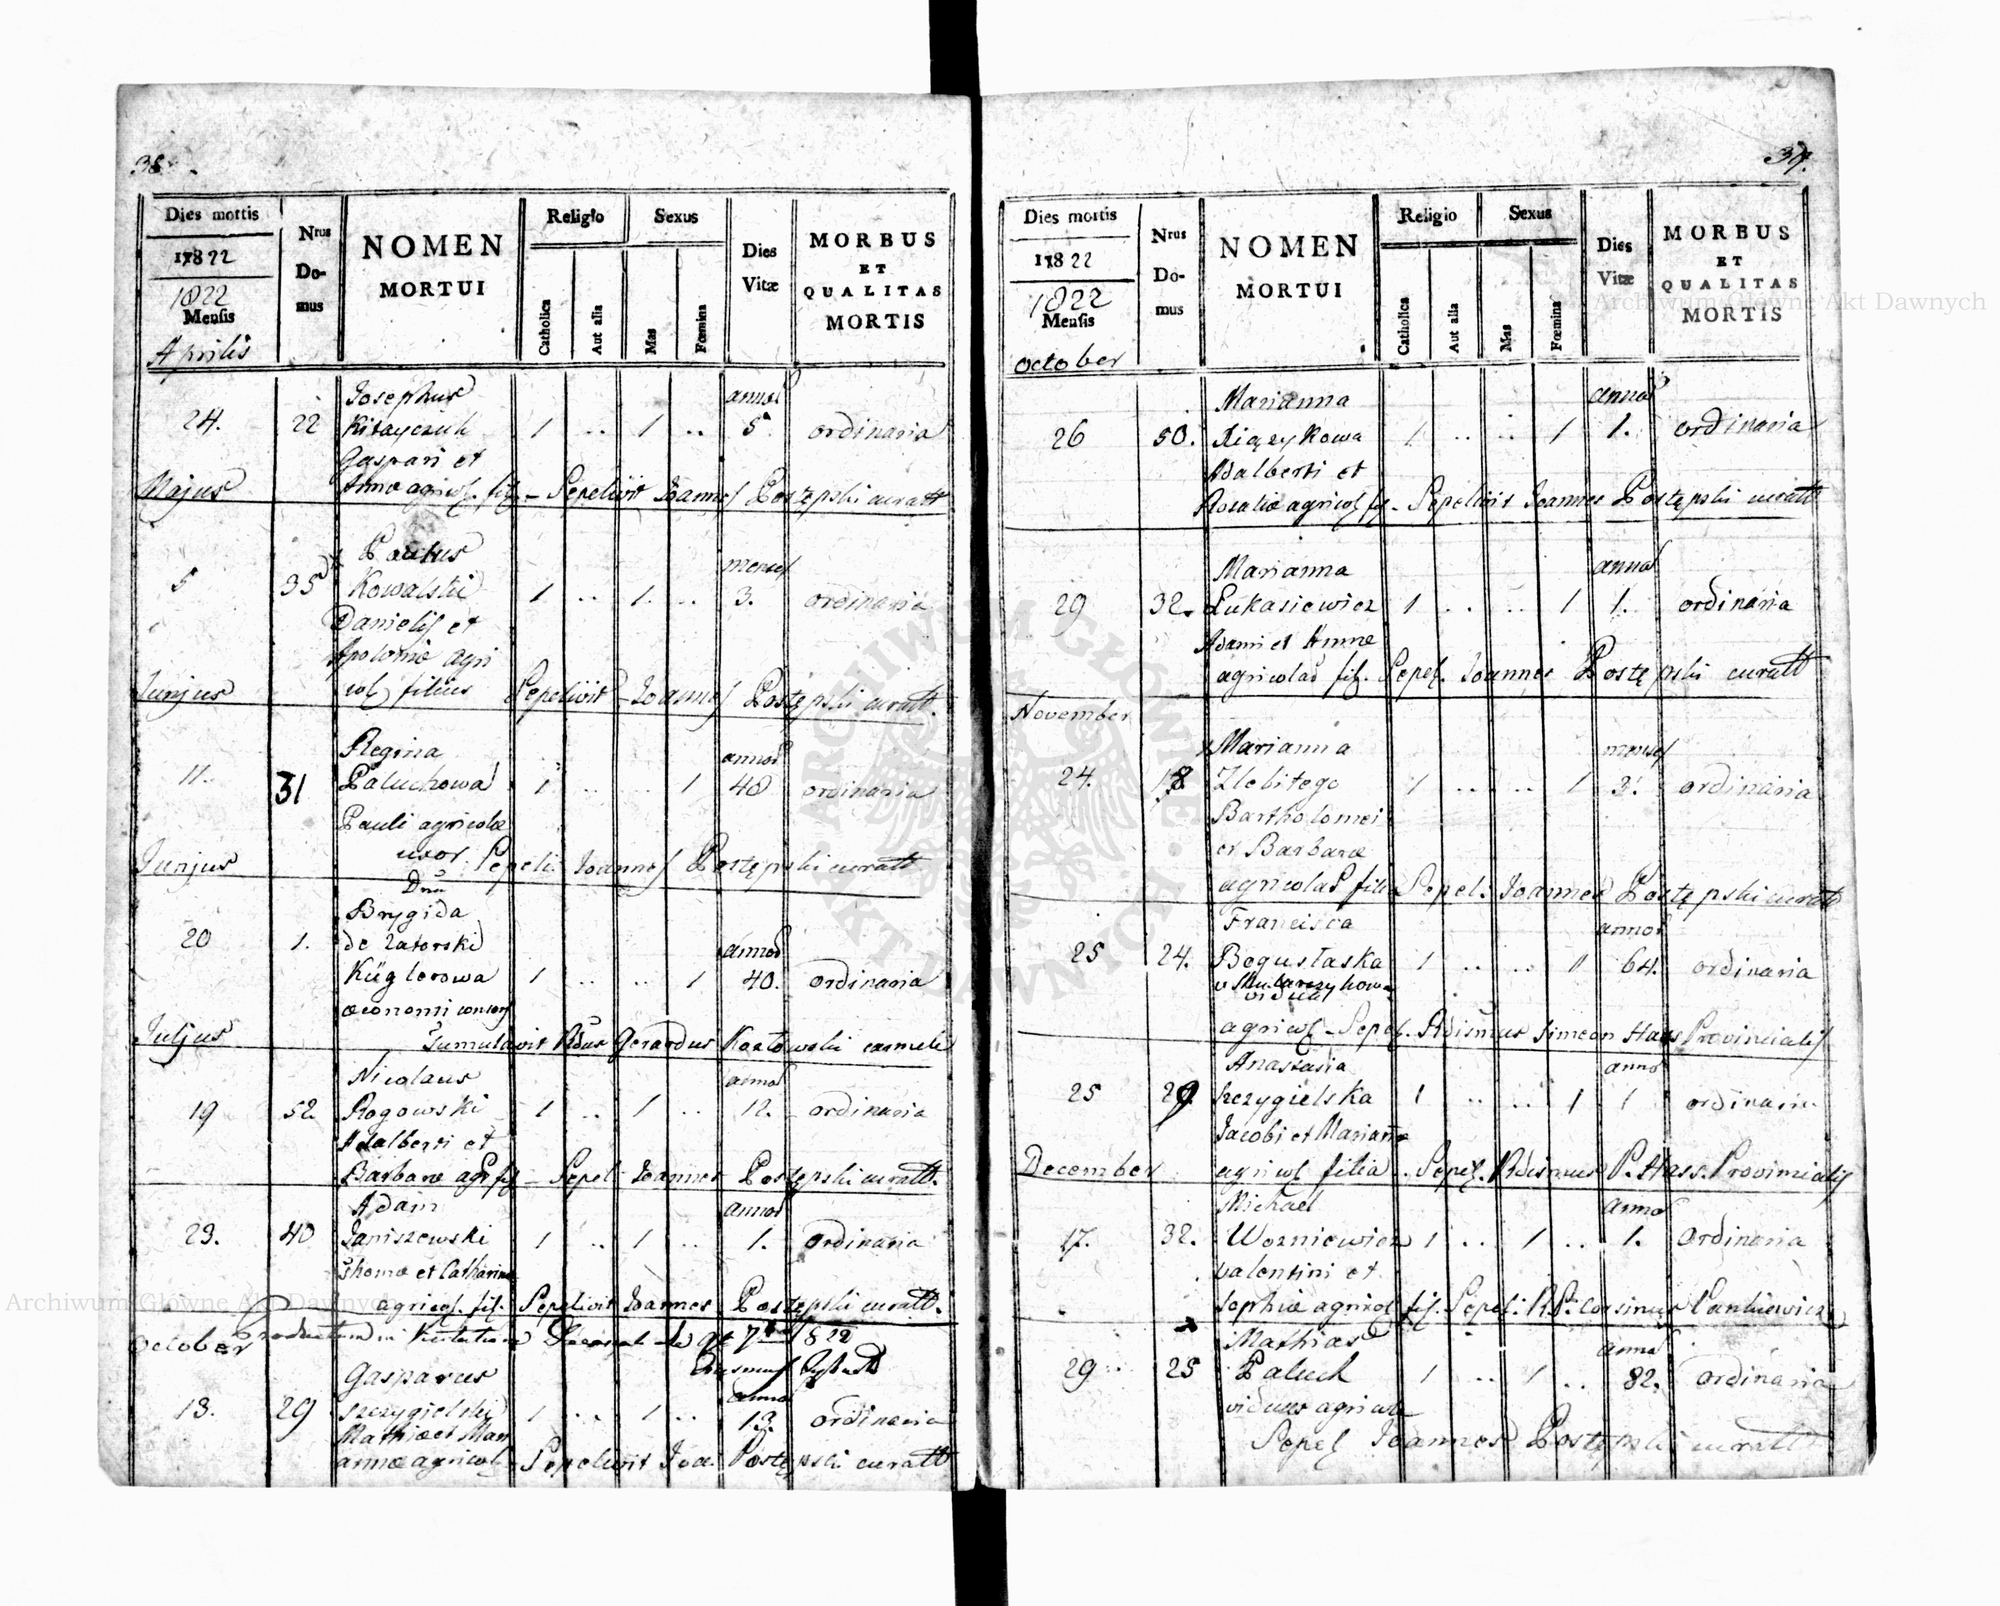 38.
Dies mortis
1822
1822
Mensis
Aprilis
Nrus
Do-
mus
NOMEN
MORTUI
Religio
Catholica
Aut alia
Sexus
Mas
Fœmina
Dies
Vitæ
MORBUS
ET
QUALITAS
MORTIS
Josephus
annor
24. 22 1 .. 1 .. 5 ordinaria
Gaspari et
Annæ agricol. fil. – Sepelivit Joannes Postępski curatt
Majus
Paulus
menses
5 35 Kowalski 1 .. 1. .. 3. ordinaria
Danielis et
Apoloniæ agri
col. filius Sepelivit – Joannes Postępski curatt.
Junjus
Regina
annor
11. 31 Paluchowa 1 .. .. 1 40 ordinaria
Pauli agricolæ
uxor. Sepeli: Joannes Postępski curatt
Junjus
Dna
Brygida
20 1. de Zatorski annor
Küglerowa 1 .. .. 1 40. ordinaria
œconomi consors
Tumulavit Rdus Gerardus Kozłowski carmeli
Juljus
Nicolaus
annor
19 52. Rogowski 1 .. 1 .. 12. ordinaria
Adalberti et
Barbaræ agr fil – Sepel: Joannes Postępski curatt.
Adam
annor
23. 40 Janiszewski 1 .. 1 .. 1. ordinaria
Thomæ et Catharinæ
agricol. fil. Sepelivit Joannes Postępski curatt.
Productum in 7 1822
October
Gasparus
annor
13. 29 Szczygielski 1 .. 1 .. 13. ordinaria
Mathiæ et Mari
annæ agricol – Sepelivit Joa: Postępski curatt
39.
Dies mortis
1822
1822
Mensis
October
Nrus
Do-
mus
NOMEN
MORTUI
Religio
Catholica
Aut alia
Sexus
Mas
Fœmina
Dies
Vitæ
MORBUS
ET
QUALITAS
MORTIS
Marianna
annor
26 50. 1 .. .. 1 1. ordinaria
Adalberti et
Rosaliæ agricol fil – Sepelivit Joannes Postępski curatt
Marianna
annor
29 32. Łukasiewicz 1 .. .. 1 1. ordinaria
Adami et Annæ
agricolar fil. Sepel. Joannes Postępski curatt
November
Marianna
menses
24. 18 Zlebitego 1 .. .. 1 3. ordinaria
Bartholomei
et Barbaræ
agricolar filia Sepel: Joannes Postępski curatt
Francisca
annor
25 24. Bogusłaska 1 .. .. 1 64. ordinaria
vidua
agricol – Sepel. Rdismus Simeon Hass Provincialis
Anastasia
anno
25 29. Szczygielska 1 .. .. 1 1 ordinaria
Jacobi et Mariannæ
agricol filia. Sepel. Rdismus P. Hass. Provincialis
December
Michael
anno
17. 32. Wozniewicz 1 .. 1 .. 1. ordinaria
Valentini et
Sophiæ agricol fil. Sepel: R.P. Pankiewicz
Mathias
annor
29 25 Paluch 1 .. 1 .. 82. ordinaria
viduus agricola
Sepel Joannes Postępski curatt
Archiwum Główne Akt Dawnych
ARCHIWUM GŁÓWNE
AKT DAWNYCH
Archiwum Główne Akt Dawnych